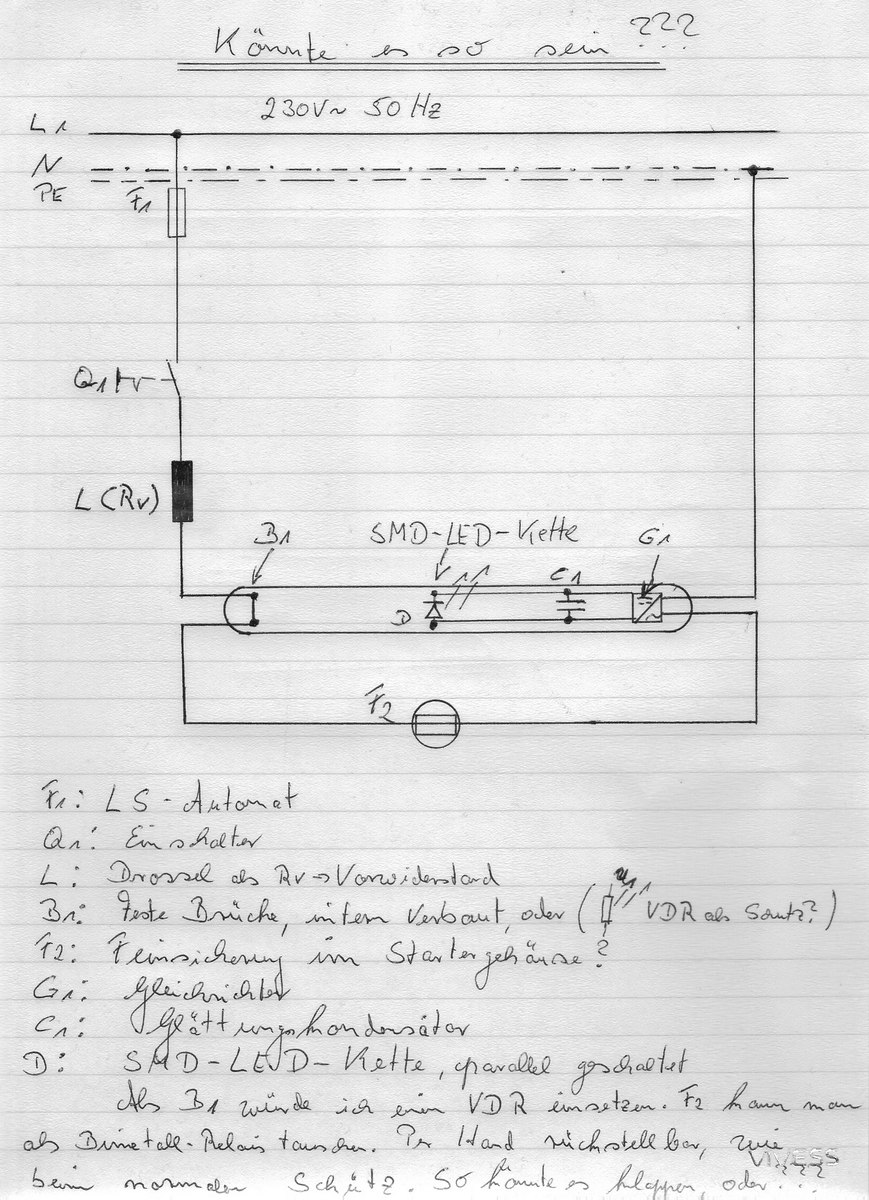 Könnte es so sein ???
230V~ 50Hz
L1
N
PE
F1
Q1
L (Rv)
B1
SMD-LED-Kette
G1
C1
D
F2
F1: LS-Automat
Q1: Einschalter
L: Drossel als Rv→Vorwiderstand
B1: Feste Brücke, intern verbaut, oder ( VDR als Schutz? )
F2: Feinsicherung im Startergehäuse?
G1: Gleichrichter
C1: Glättungskondensátor
D: SMD-LED-Kette, parallel geschaltet
Als B1 würde ich ein VDR einsetzen. F2 kann man
als Bimetall-Relais tauschen. Per Hand rückstellbar, wie
beim normalen Schütz. So könnte es klappen, oder ???
VIVESS